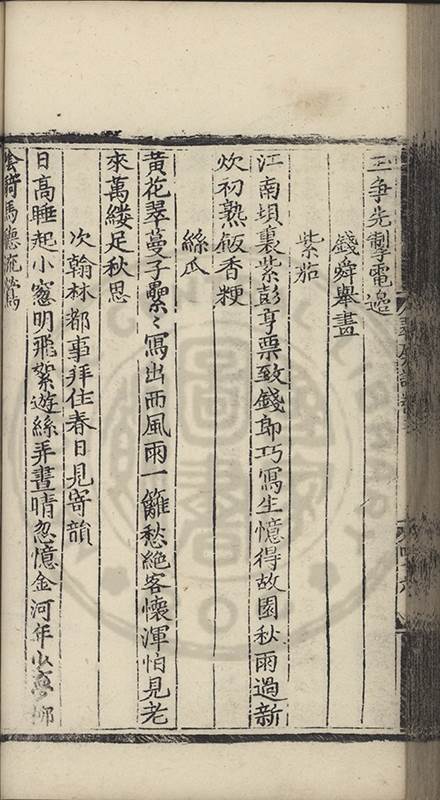 玉爭先掣電過
錢舜舉畫
紫茄
江南壩裏紫彭亨票致錢郎巧寫生憶得故園秋雨過新
炊初熟飯香粳
絲瓜
黃花翠蔓子纍〻寫出西風雨一籬愁絶客懷渾怕見老
來萬縷足秋思
次翰林都事拜住春日見寄韻
日高睡起小窓明飛絮遊絲弄晝晴忽憶金河年少夢柳
陰騎馬聽流鶯